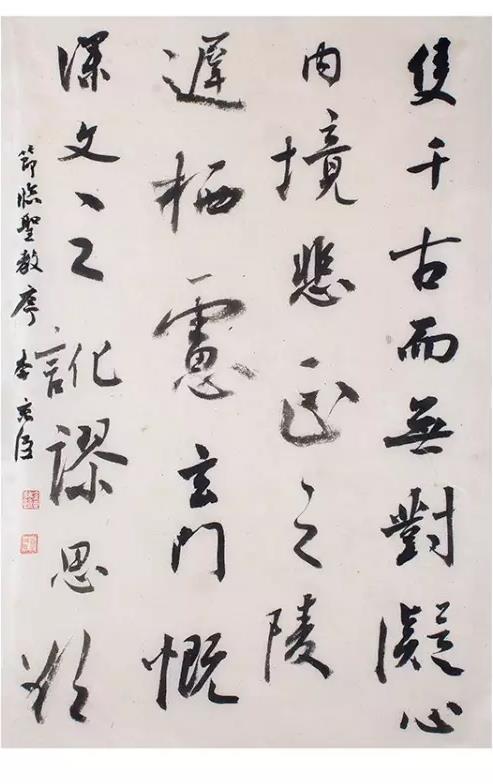 隻千古而無對凝心
内境悲正之陵
遲栖慮玄門慨
深文之訛謬思欲
節臨聖教序 李